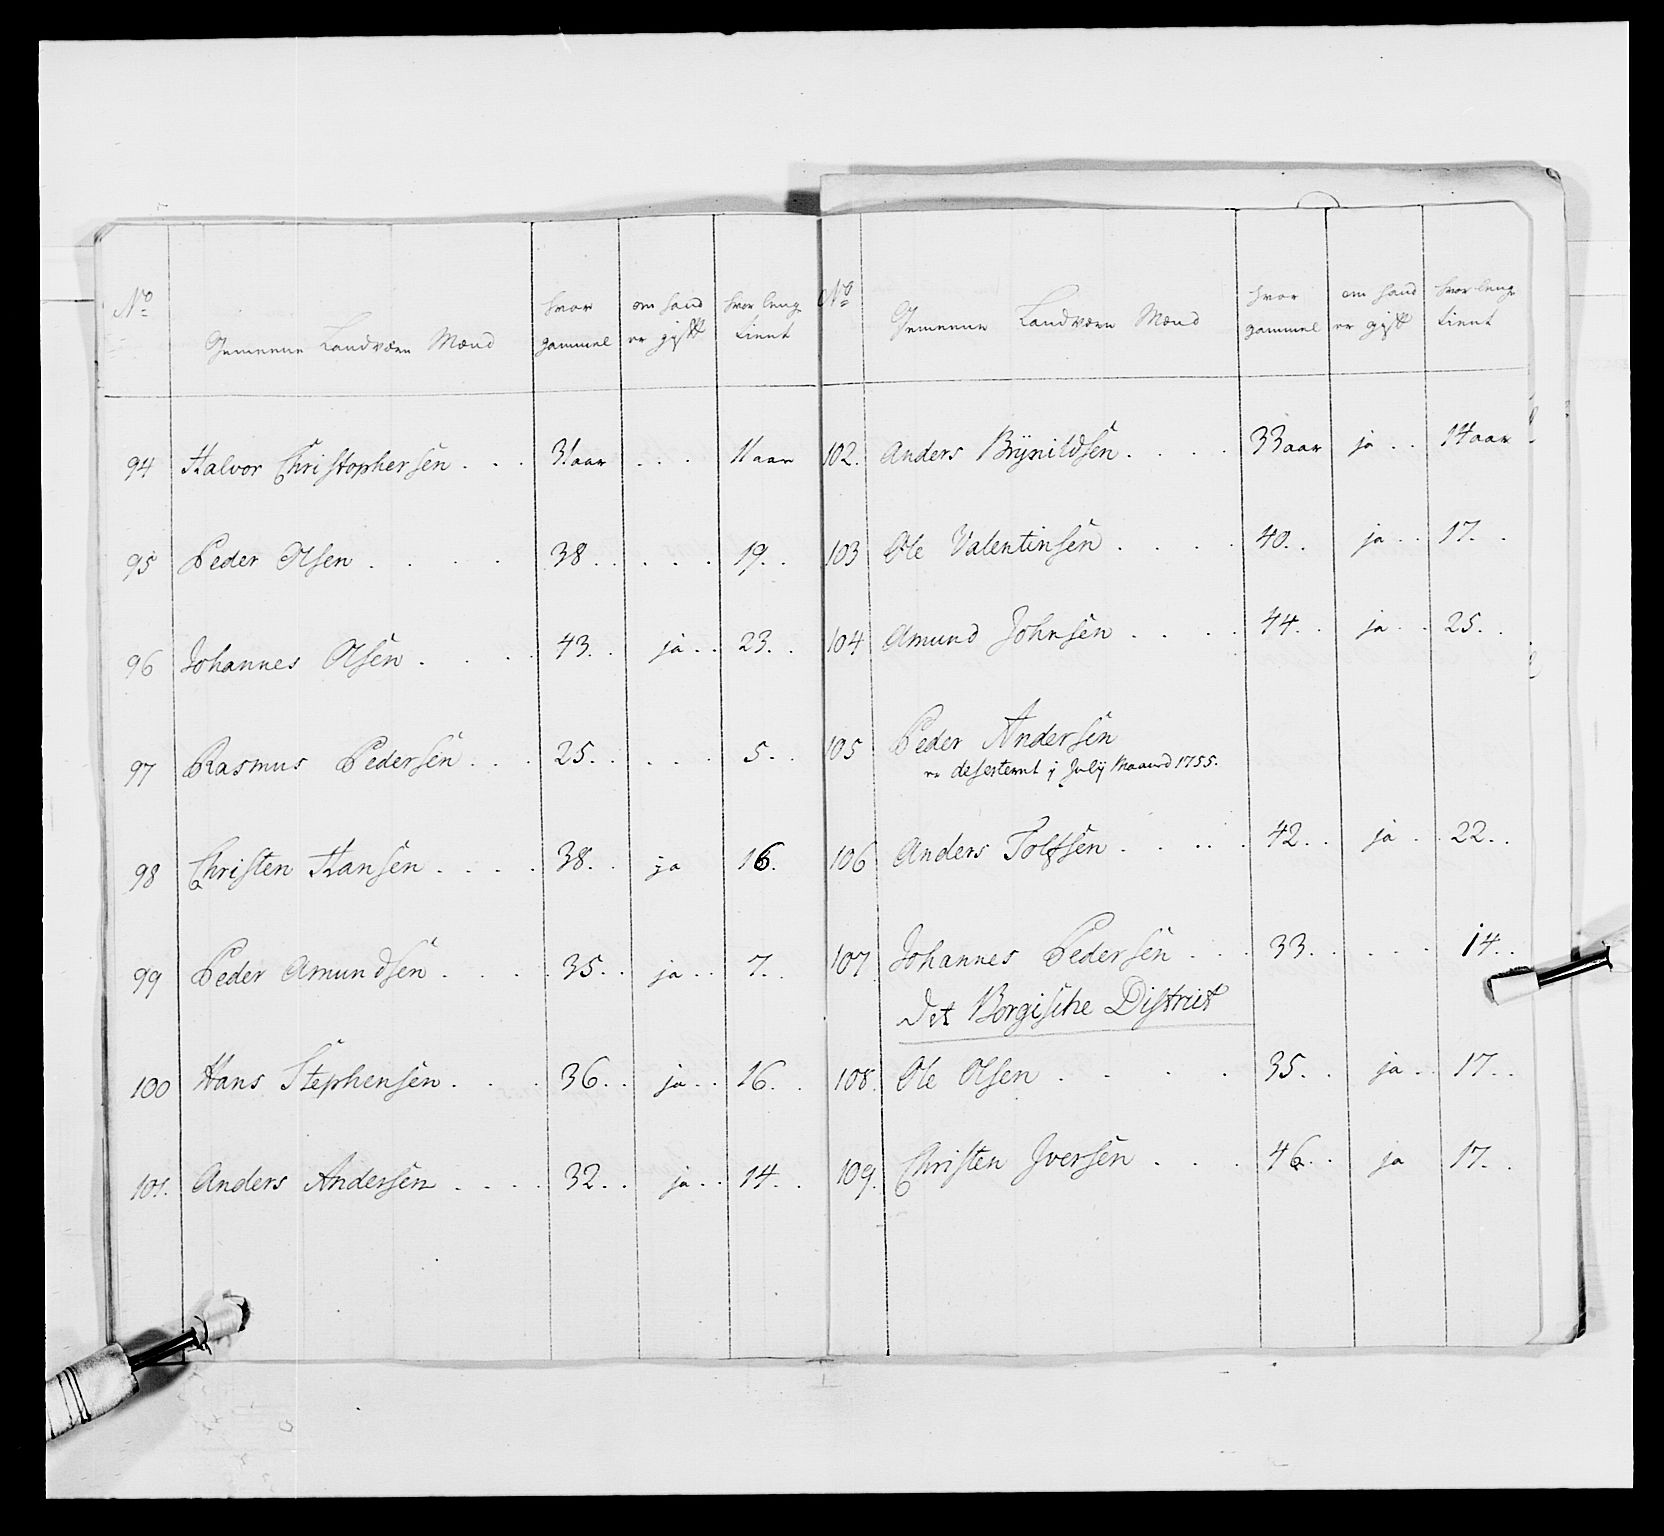 No
Gemeene Landværn Mænd
hvor gammel
om hand er gift
hvor lenge tient
94 Halvor Christophersen . . . 31 aar . . . 11 aar
95 Peder Olsen . . . . 38 . . . . . 19 . .
96 Johannes Olsen . . . 43 . . ja . . 23 . .
97 Rasmus Pedersen . . . 25 . . . . . 5 . .
98 Christen Hansen . . . . 38 . . ja 16 .
99 Peder Amundsen . . . . 35 . . ja . . 7 . .
100 Hans Stephensen . . . 36 . . ja . . 16 . .
101. Anders Andersen . . . . 32 . . ja . . 14 . .
No
Gemeene Landværn Mænd
hvor gammel
om hand er gift
hvor lenge tient
102. Anders Brÿnildsen . . . . 33 aar ja . . 14 aar
103 Ole Valentinsen . . . . 40 . . ja . . 17 . .
104 Amund Johnsen . . . . 44 . . ja . . 25 . .
105 Peder Andersen
er deserteret j Julÿ Maaned 1755.
106 Anders Tolfsen . . . . . 42 . . ja . . 22 . .
107 Johannes Pedersen . . . 33 . . . . 14 . .
Det Borgische District
108. Ole Olsen . . . . 35 . . ja . . 17 . .
109. Christen Jversen . . . 46 . . ja 17 . .